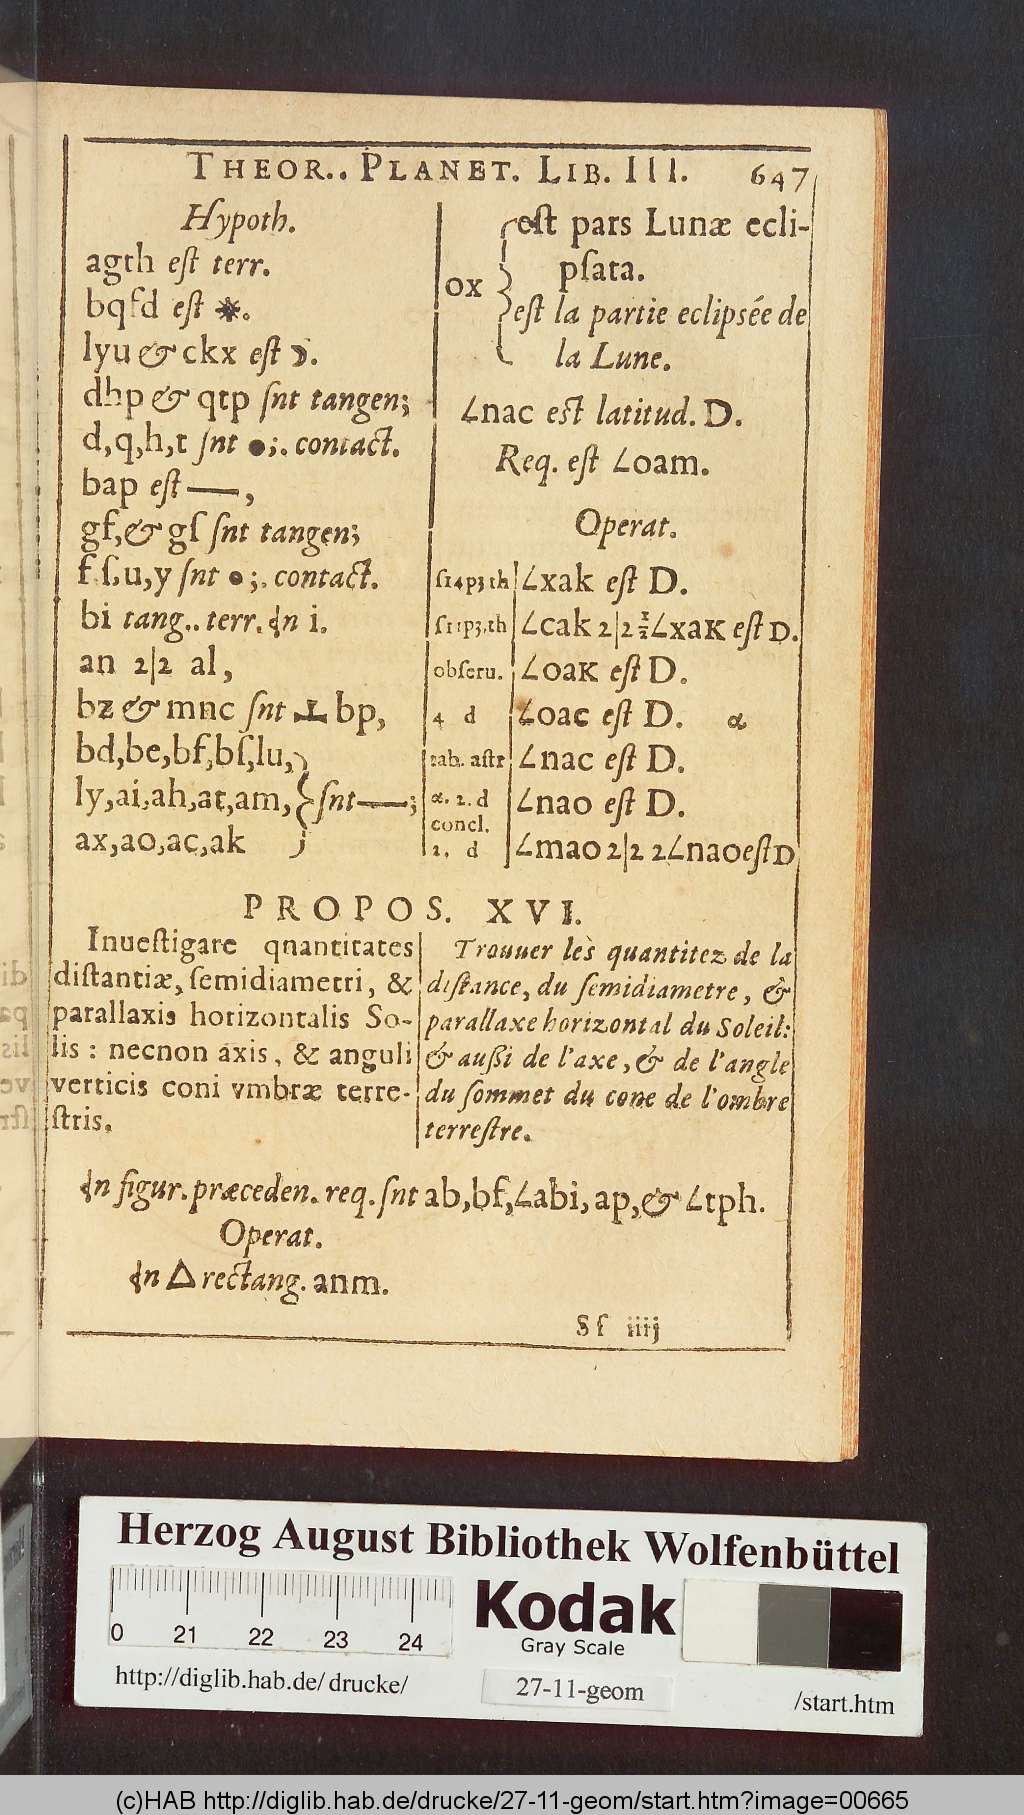 THEOR.. PLANET. LIB. III. 647
Hypoth.
agth eſt terr.
bqſd eſt ☀.
lyu & ckx eſt ☽.
dhp & qtp ſnt tangen;
d,q,h,t ſnt ●;. contact.
bap eſt —,
gf,& gſ ſnt tangen;
f,ſ,u,y ſnt ●;. contact.
bi tang.. terr. in i.
an 2|2 al,
bz & mnc ſnt ⊥ bp,
bd,be,bf,bſ,lu,
ly,ai,ah,at,am, } ſnt —;
ax,ao,ac,ak
ox { eſt pars Lunæ ecli-
pſata.
eſt la partie eclipsée de
la Lune.
∠nac eſt latitud. D.
Req. eſt ∠oam.
Operat.
ſ14p3th ∠xak eſt D.
ſ11p3.th ∠cak 2|2 ½∠xaK eſt D.
obſeru. ∠oaK eſt D.
4 d ∠oac eſt D. α
tab. aſtr ∠nac eſt D.
α. 2. d ∠nao eſt D.
concl.
2. d ∠mao 2|2 2∠nao eſt D
PROPOS. XVI.
Inueſtigare qnantitates
diſtantiæ, ſemidiametri, &
parallaxis horizontalis So-
lis : necnon axis, & anguli
verticis coni vmbræ terre-
ſtris.
Trouuer les quantitez de la
diſtance, du ſemidiametre, &
parallaxe horizontal du Soleil:
& außi de l'axe, & de l'angle
du ſommet du cone de l'ombre
terreſtre.
In figur. præceden. req. ſnt ab,bf,∠abi, ap,& ∠tph.
Operat.
In △ rectang. anm.
Sſ iiij
Herzog August Bibliothek Wolfenbüttel
0 21 22 23 24
Kodak
Gray Scale
http://diglib.hab.de/drucke/
27-11-geom
/start.htm
(c)HAB http://diglib.hab.de/drucke/27-11-geom/start.htm?image=00665